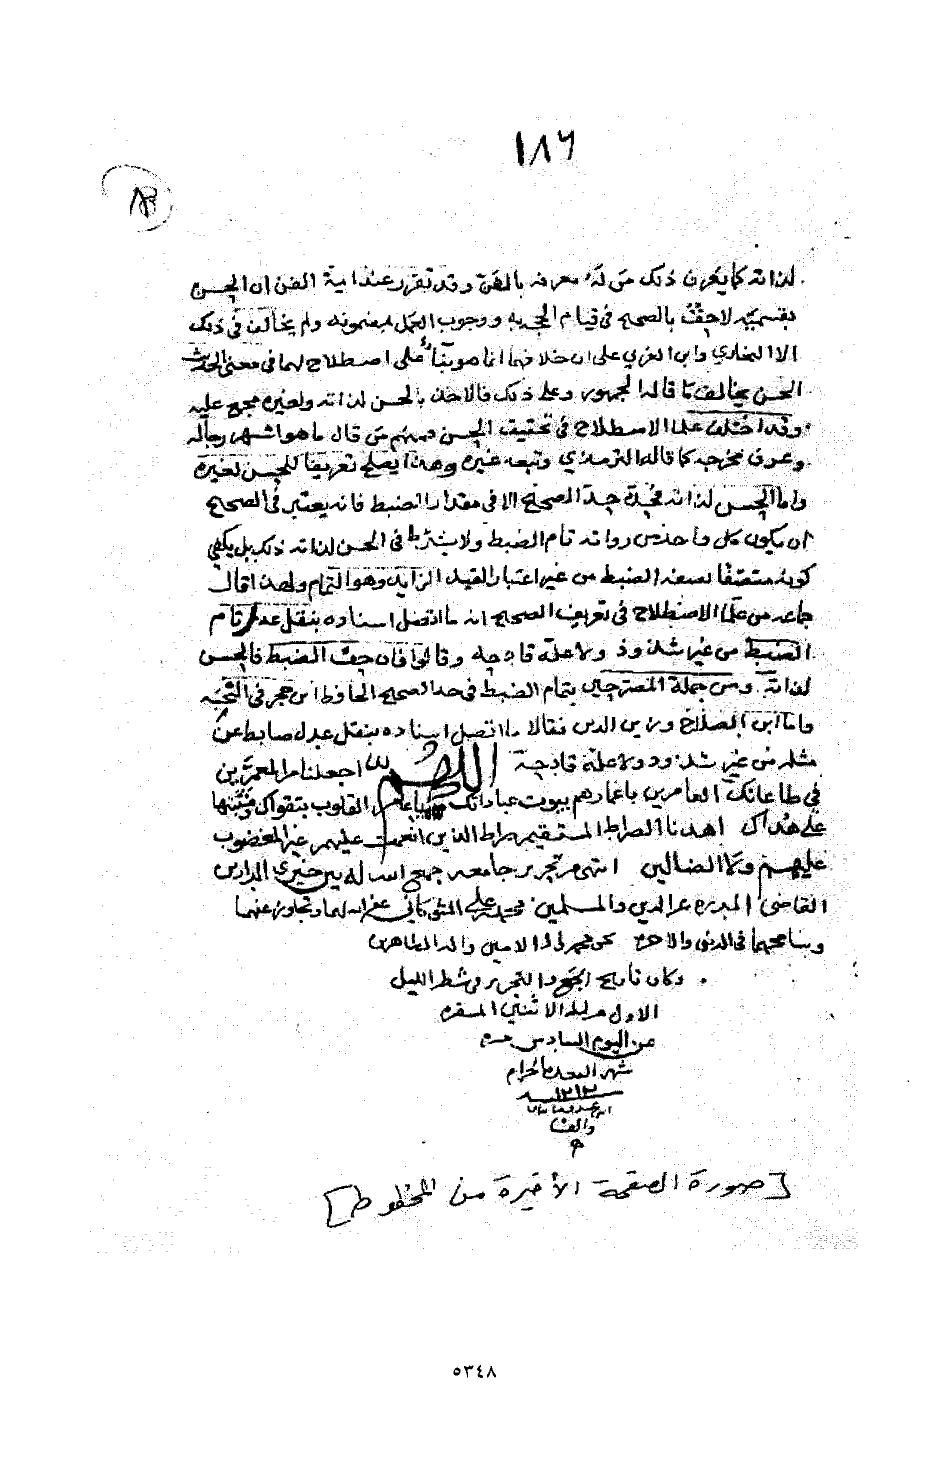 ١٨٦
لذاته كما يعرف ذلك من له معرفة بالفن وقد تقرر عند ايمة الفن ان الحسن
بقسميه لاحق بالصحيح في قيام الحجة به ووجوب العمل بمضمونه ولم يخالف في ذلك
الا البخاري وابن العربي على ان خلافهما انما هو بنا على اصطلاح لهما في معنى الحديث
الحسن يخالف ما قاله الجمهور وعلى ذلك فالاحتجاج بالحسن لذاته ولغيره مجمع عليه
وقد اختلف علما الاصطلاح في تحقيق الحسن فمنهم من قال ما هو اشتهر رجاله
وعرف مخرجه كما قاله الترمذي وتبعه غيره وهذا يصلح تعريفا للحسن لغيره
واما الحسن لذاته فحده حد الصحيح الا في مقدار الضبط فانه يعتبر في الصحيح
ان يكون كل واحد من رواته تام الضبط ولا يشترط في الحسن لذاته ذلك بل يكفي
كونه متصفا بصفة الضبط من غير اعتبار القيد الزايد وهو التمام ولهذا قال
جماعه من علما الاصطلاح في تعريف الصحيح انه ما اتصل اسناده بنقل عدل تام
الضبط من غير شذوذ ولا علة قادحه وقالوا فان خف الضبط فالحسن
لذاته ومن جملة المصرحين بتمام الضبط في حد الصحيح الحافظ ابن حجر في النخبه
واما ابن الصلاح وزين الدين فقالا ما اتصل اسناده بنقل عدل ضابط عن
مثله من غير شذوذ ولا علة قادحة اللهم اجعلنا من المعمرين
في طاعاتك العامرين باعمارهم بيوت عباداتك يا عامر القلوب بتقواك وثبتها
على هداك اهدنا الصراط المستقيم صراط الذين انعمت عليهم غير المغضوب
عليهم ولا الضالين انتهى تحرير جامعه جمع الله له بين خيري الدارين
القاضي البدر عز الدين والمسلمين محمد بن علي الشوكاني غفر الله لهما وتجاوز عنهما
وسامحهما في الدنيا والاخره بحق محمد الامين واله الطاهرين
وكان تاريخ الجمع والتحرير في شطر الليل
الاول من ليلة الاثنين المسفره
عن اليوم السادس من
شهر القعده الحرام
سنه ١٢١٣
والف
[صورة الصفحة الأخيرة من المخطوط]
٥٣٤٨